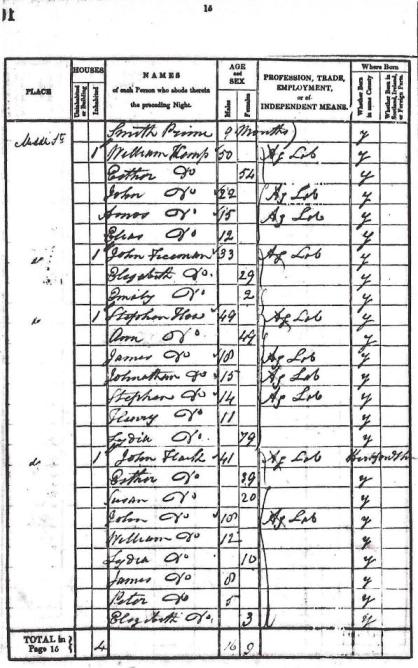 15
PLACE
HOUSES
Uninhabited or Building
Inhabited
NAMES
of each Person who abode therein
the preceding Night.
AGE
and
SEX
Males
Females
PROFESSION, TRADE,
EMPLOYMENT,
or of
INDEPENDENT MEANS.
Where Born
Whether Born
in same County
Whether Born in
Scotland, Ireland,
or Foreign Parts.
Middle St Smith Prime 9 Months) y
1 William Kemp 50 Ag Lab y
Esther Do 54 y
John Do 22 Ag Lab y
Amos Do 15 Ag Lab y
Elias Do 12 y
do 1 John Freeman 33 Ag Lab y
Elizabeth Do. 29 y
Do 2 y
do 1 Stephen 49 Ag Lab y
Ann Do 49 y
James Do 18 Ag Lab y
Johnathan Do 15 Ag Lab y
Stephen Do 14 Ag Lab y
Henry Do 11 y
Lydia Do. 79 y
do 1 John 41 Ag Lab
Esther Do 39 y
Susan Do 20 y
John Do 18 Ag Lab y
William Do 12 y
Lydia Do 10 y
James Do 8 y
Peter Do 5 y
Elizabeth Do. 3 y
TOTAL in
Page 15 4 16 9